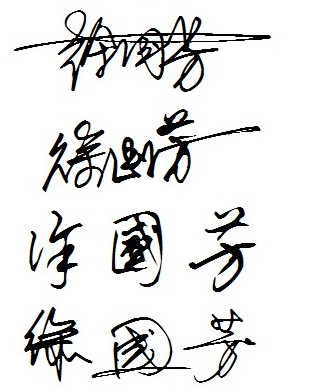 徐国芳
徐国芳
徐國芳
徐國芳